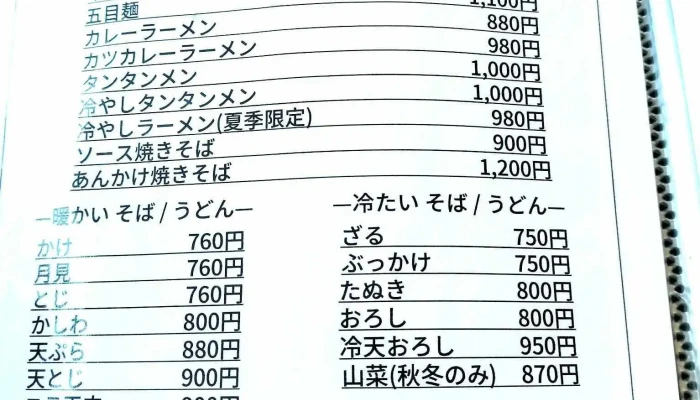 五目麺 1,100円
カレーラーメン 880円
カツカレーラーメン 980円
タンタンメン 1,000円
冷やしタンタンメン 1,000円
冷やしラーメン(夏季限定) 980円
ソース焼きそば 900円
あんかけ焼きそば 1,200円
―暖かい そば / うどん―
かけ 760円
月見 760円
とじ 760円
かしわ 800円
天ぷら 880円
天とじ 900円
―冷たい そば / うどん―
ざる 750円
ぶっかけ 750円
たぬき 800円
おろし 800円
冷天おろし 950円
山菜(秋冬のみ) 870円